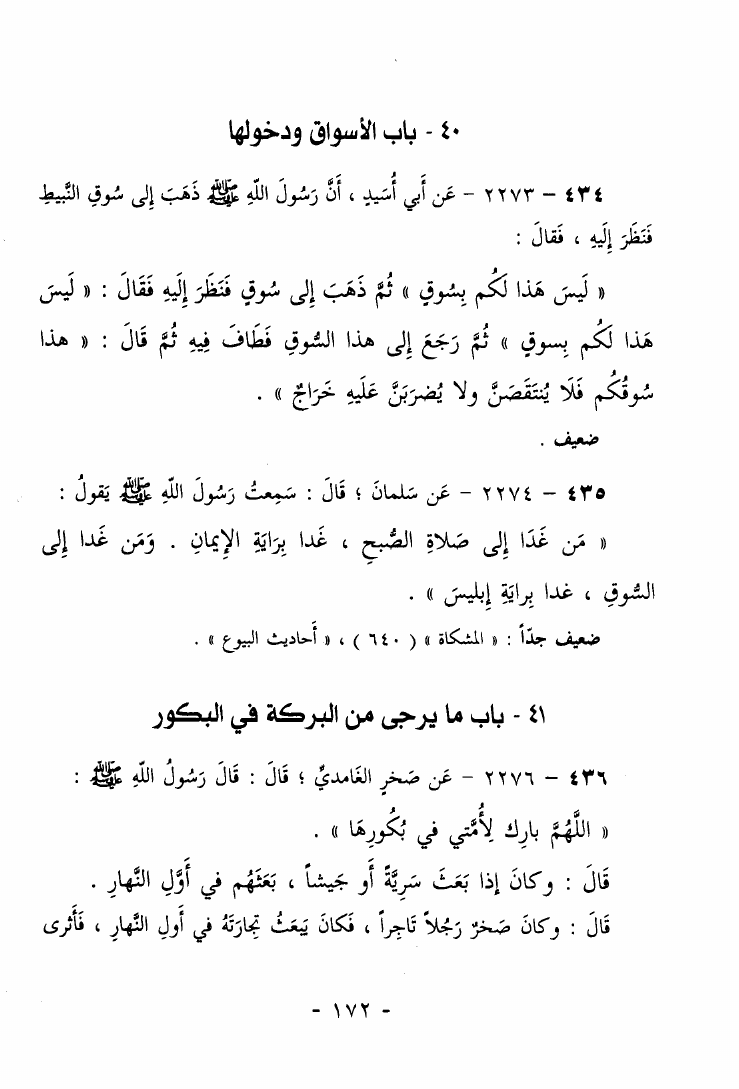 ٤٠ - باب الأسواق ودخولها
٤٣٤ – ٢٢٧٣ – عَن أبي أُسَيدٍ ، أَنَّ رَسُولَ اللّهِ ﷺ ذَهَبَ إِلى سُوقِ النَّبيطِ
فَنَظَرَ إِلَيهِ ، فَقالَ :
« لَيسَ هَذا لَكُم بِسُوقٍ » ثُمَّ ذَهَبَ إِلى سُوقٍ فَنَظَرَ إِلَيهِ فَقَالَ : « لَيسَ
هَذا لَكُم بِسوقٍ » ثُمَّ رَجَعَ إِلى هذا السُّوقِ فَطَافَ فِيهِ ثُمَّ قَالَ : « هذا
سُوقُكُم فَلَا يُنتَقَصَنَّ ولا يُضرَبَنَّ عَلَيهِ خَرَاجٌ » .
ضعيف .
٤٣٥ – ٢٢٧٤ – عَن سَلمانَ ؛ قالَ : سَمِعتُ رَسُولَ اللّهِ ﷺ يَقولُ :
« مَن غَدَا إِلى صَلاةِ الصُّبحِ ، غَدا بِرَايَةِ الإِيمانِ . وَمَن غَدا إِلى
السُّوقِ ، غدا بِرايَةِ إِبليسَ » .
ضعيف جدّاً : « المشكاة » ( ٦٤٠ ) ، « أَحاديث البيوع » .
٤١ - باب ما يرجى من البركة في البكور
٤٣٦ – ٢٢٧٦ – عَن صَخرٍ الغَامديِّ ؛ قَالَ : قَالَ رَسُولُ اللّهِ ﷺ :
« اللَّهُمَّ بارِك لِأُمَّتي في بُكُورِهَا » .
قَالَ : وكانَ إذا بَعَثَ سَرِيَّةً أَو جَيشاً ، بَعَثَهُم في أَوَّلِ النَّهارِ .
قَالَ : وكانَ صَخرٌ رَجُلاً تَاجِراً ، فَكانَ يَبعَثُ تِجارَتَهُ في أَولِ النَّهارِ ، فَأَثرى
- ١٧٢ -